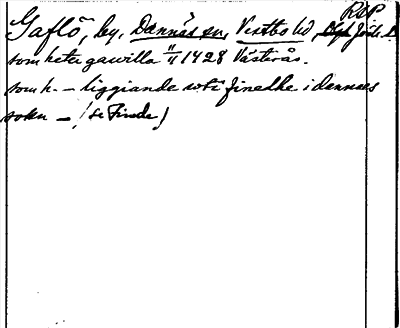 RAP
Gaflö, by, Dannäs sn, Västbo hd,
som heter gawilla 11/11 1428 Västerås.
som h. – liggiande wti finedhe i dennæs
sokn – (se Finde)